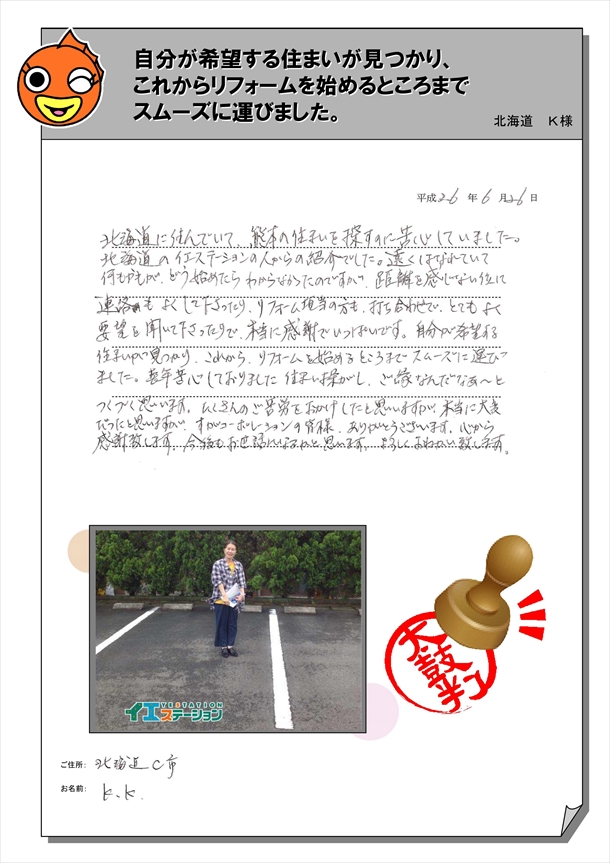 自分が希望する住まいが見つかり、
これからリフォームを始めるところまで
スムーズに運びました。
北海道 K様
平成26年6月26日
北海道に住んでいて、熊本の住まいを探すのに苦心していました。
北海道のイエステーションの人からの紹介でした。遠くはなれていて
何もかもが、どう始めたらわからなかったのですが、距離を感じない位に
連絡もよくして下さったり、リフォーム担当の方も、打ち合わせで、とてもよく
要望を聞いて下さったりで、本当に感謝でいっぱいです。自分が希望する
住まいが見つかり、これから、リフォームを始めるところまでスムーズに運び
ました。長年苦心しておりました住まい探がし、ご縁なんだなぁ〜と
つくづく思います。たくさんのご苦労をおかけしたと思いますが、本当に大変
だったと思いますが、すがコーポレーションの皆様、ありがとうございます。心から
感謝致します。今後もお世話になるかと思います。よろしくおねがい致します。
YESTATION
イエステーション
太鼓判
ご住所: 北海道C市
お名前: K.K.